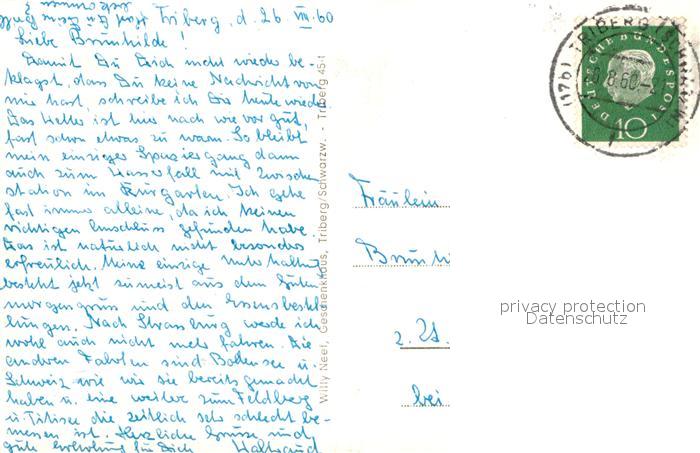 Triberg, d. 26 VIII. 60
Liebe Brunhilde!
Damit Du Dich nicht wieder be-
klagst, dass Du keine Nachricht von
mir hast, schreibe ich Dir heute wieder.
Das Wetter ist hier nach wie vor gut,
fast schon etwas zu warm. So bleibt
mein einziger Spaziergang dann
auch zum Wasserfall mit Zwischen-
station im Kurgarten. Ich gehe
fast immer alleine, da ich keinen
richtigen Anschluss gefunden habe.
Das ist natürlich nicht besonders
erfreulich. Meine einzige Unterhaltung
besteht jetzt zumeist aus dem Guten
morgengruss und den Essensbestel-
lungen. Nach Strassburg werde ich
wohl auch nicht mehr fahren. Die
anderen Fahrten sind Bodensee u.
Schweiz wie wir sie bereits gemacht
haben u. eine weitere zum Feldberg
u. Titisee die zeitlich sehr schlecht be-
messen ist. Herzliche Grüsse und
gute Erholung für Dich Waltraud
Willy Neef, Geschenkhaus, Triberg/Schwarzw. - Triberg 45-1
(17b) TRIBERG (SCHWARZW)
8.60
DEUTSCHE BUNDESPOST
10
Fräulein
Brunhi
z. Zt.
bei
privacy protection
Datenschutz